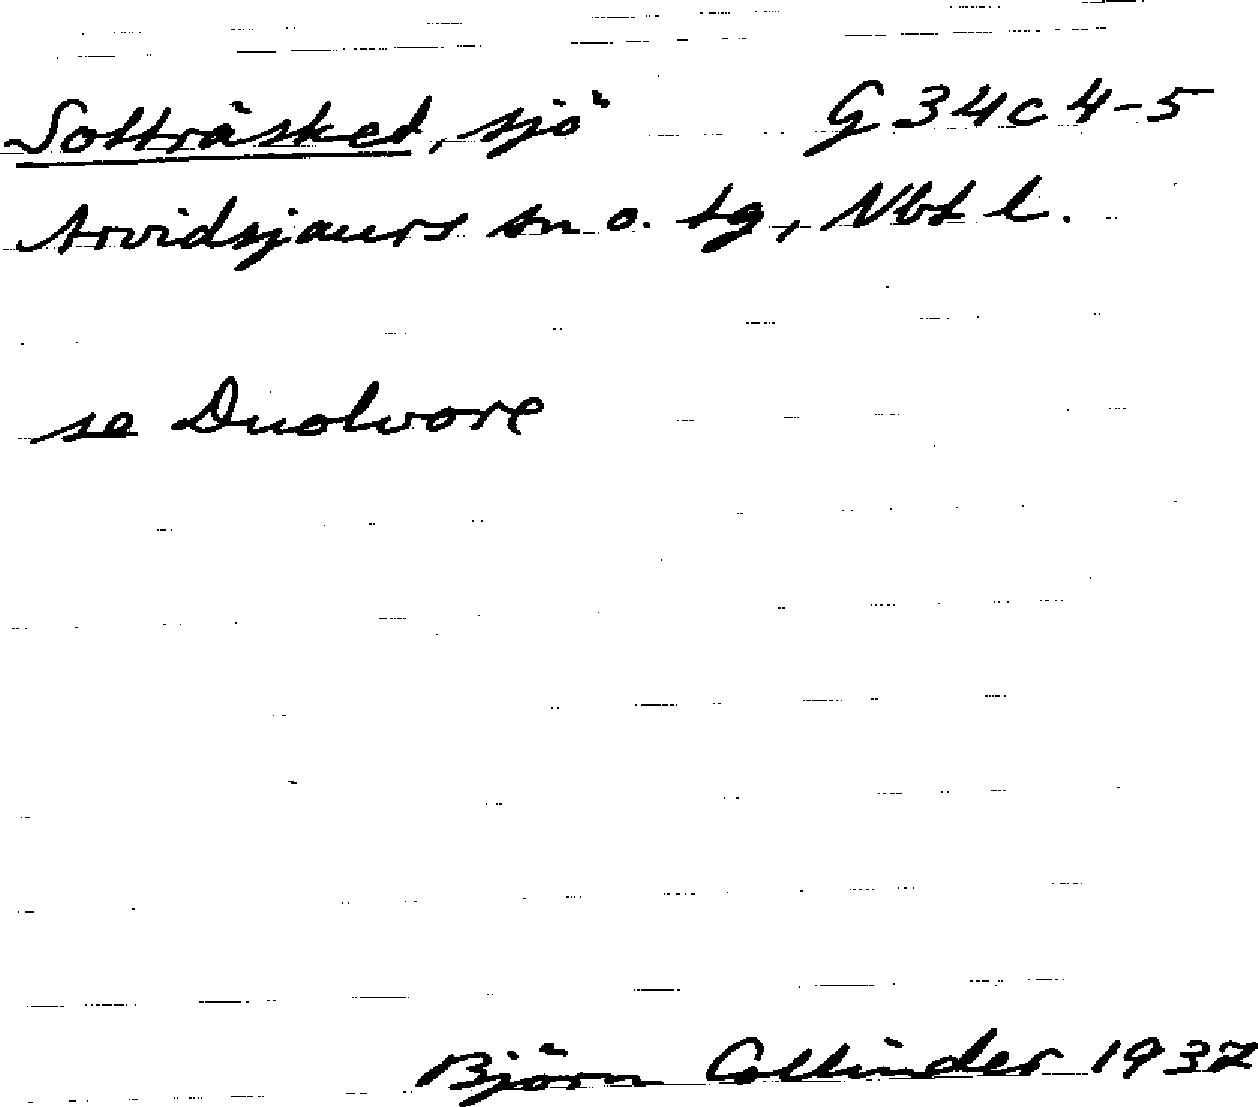 Sotträsket, sjö G 34 c 4-5
Arvidsjaurs sn o. tg, Nbt l.
se Duolvare
Björn Collinder 1937